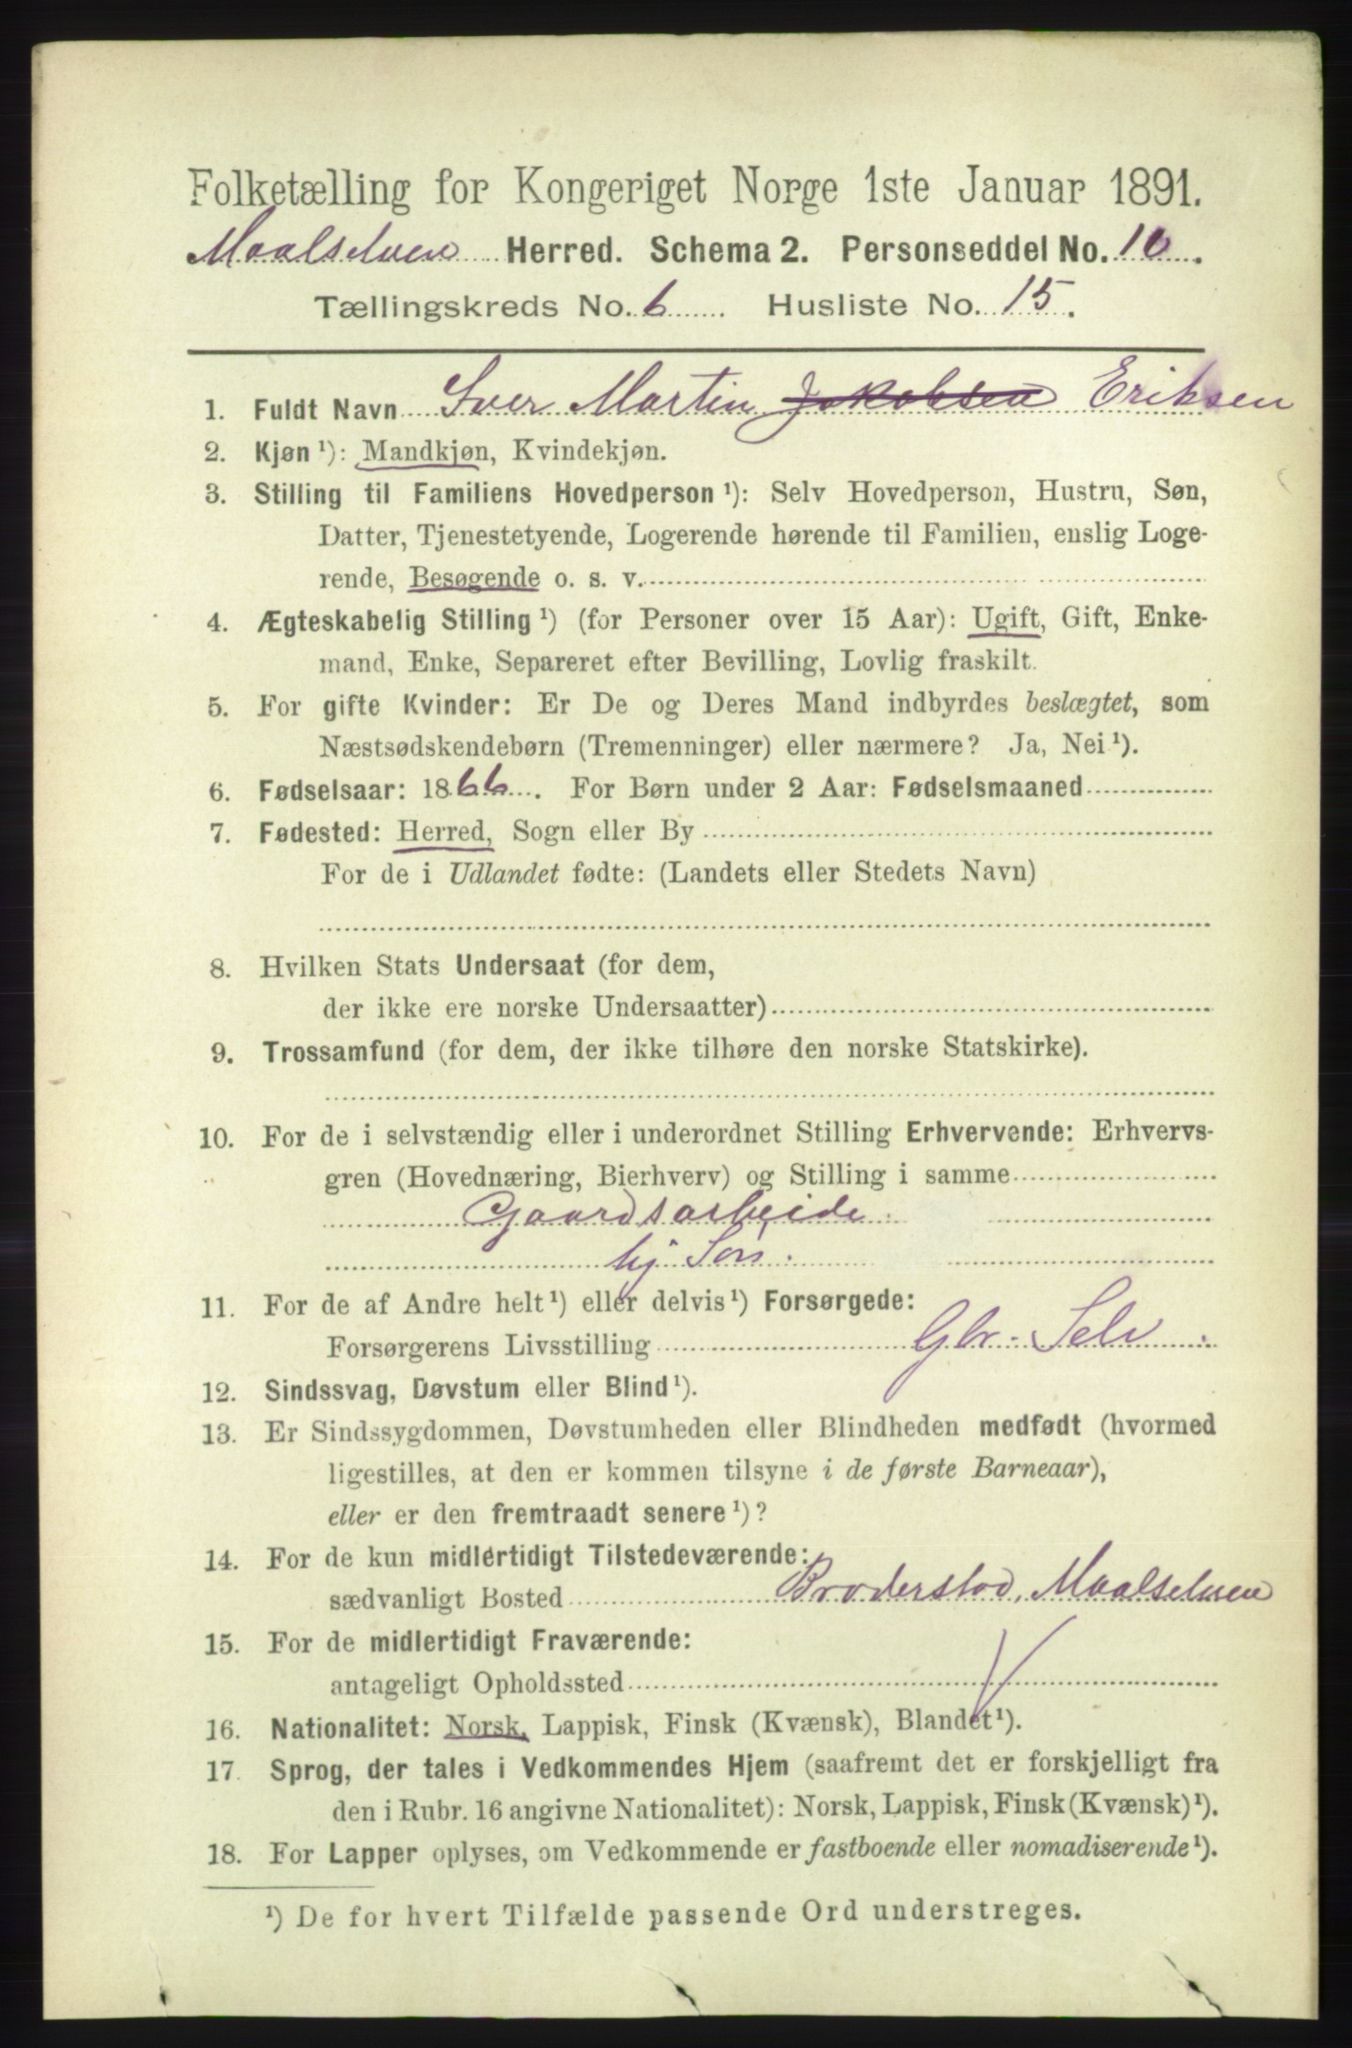 Folketælling for Kongeriget Norge 1ste Januar 1891.
Maalselven Herred. Schema 2. Personseddel No. 10.
Tællingskreds No. 6 Husliste No. 15.
1. Fuldt Navn Iver Martin Jakobsen Eriksen
2. Kjøn ¹): Mandkjøn, Kvindekjøn.
3. Stilling til Familiens Hovedperson ¹): Selv Hovedperson, Hustru, Søn,
Datter, Tjenestetyende, Logerende hørende til Familien, enslig Loge-
rende, Besøgende o. s. v.
4. Ægteskabelig Stilling ¹) (for Personer over 15 Aar): Ugift, Gift, Enke-
mand, Enke, Separeret efter Bevilling, Lovlig fraskilt.
5. For gifte Kvinder: Er De og Deres Mand indbyrdes beslægtet, som
Næstsødskendebørn (Tremenninger) eller nærmere? Ja, Nei ¹).
6. Fødselsaar: 1866. For Børn under 2 Aar: Fødselsmaaned
7. Fødested: Herred, Sogn eller By
For de i Udlandet fødte: (Landets eller Stedets Navn)
8. Hvilken Stats Undersaat (for dem,
der ikke ere norske Undersaatter)
9. Trossamfund (for dem, der ikke tilhøre den norske Statskirke).
10. For de i selvstændig eller i underordnet Stilling Erhvervende: Erhvervs-
gren (Hovednæring, Bierhverv) og Stilling i samme
Gaardsarbeide.
hj Søn.
11. For de af Andre helt ¹) eller delvis ¹) Forsørgede:
Forsørgerens Livsstilling Gbr. Selv.
12. Sindssvag, Døvstum eller Blind ¹).
13. Er Sindssygdommen, Døvstumheden eller Blindheden medfødt (hvormed
ligestilles, at den er kommen tilsyne i de første Barneaar),
eller er den fremtraadt senere ¹)?
14. For de kun midlertidigt Tilstedeværende:
sædvanligt Bosted Broderstad, Maalselven
15. For de midlertidigt Fraværende:
antageligt Opholdssted
16. Nationalitet: Norsk, Lappisk, Finsk (Kvænsk), Blandet ¹).
17. Sprog, der tales i Vedkommendes Hjem (saafremt det er forskjelligt fra
den i Rubr. 16 angivne Nationalitet): Norsk, Lappisk, Finsk (Kvænsk) ¹).
18. For Lapper oplyses, om Vedkommende er fastboende eller nomadiserende ¹).
¹) De for hvert Tilfælde passende Ord understreges.